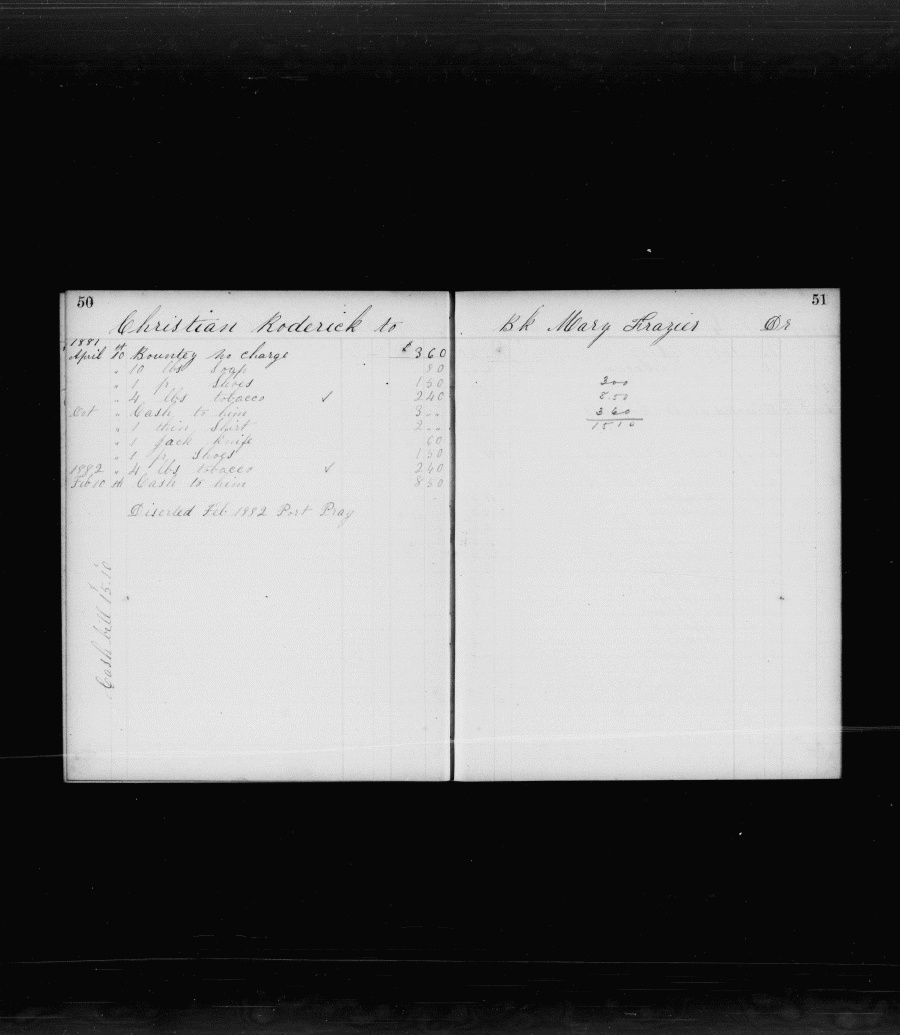 50
Christian Roderick to
1881
April 10th Bountey no charge $ 3 60
" 10 lbs Soap 80
" 1 pr Shoes 1 50
" 4 lbs tobacco ✓ 2 40
Oct " Cash to him 3 --
" 1 thin Shirt 2 --
" 1 Jack Knife 60
" 1 pr Shoes 1 50
1882 " 4 lbs tobacco ✓ 2 40
Feb 10 th Cash to him 8 50
Diserted Feb 1882 Port Pray
Cash bill 15.10
51
Bk Mary Frazier Dr
3 00
8.50
3 60
15 10